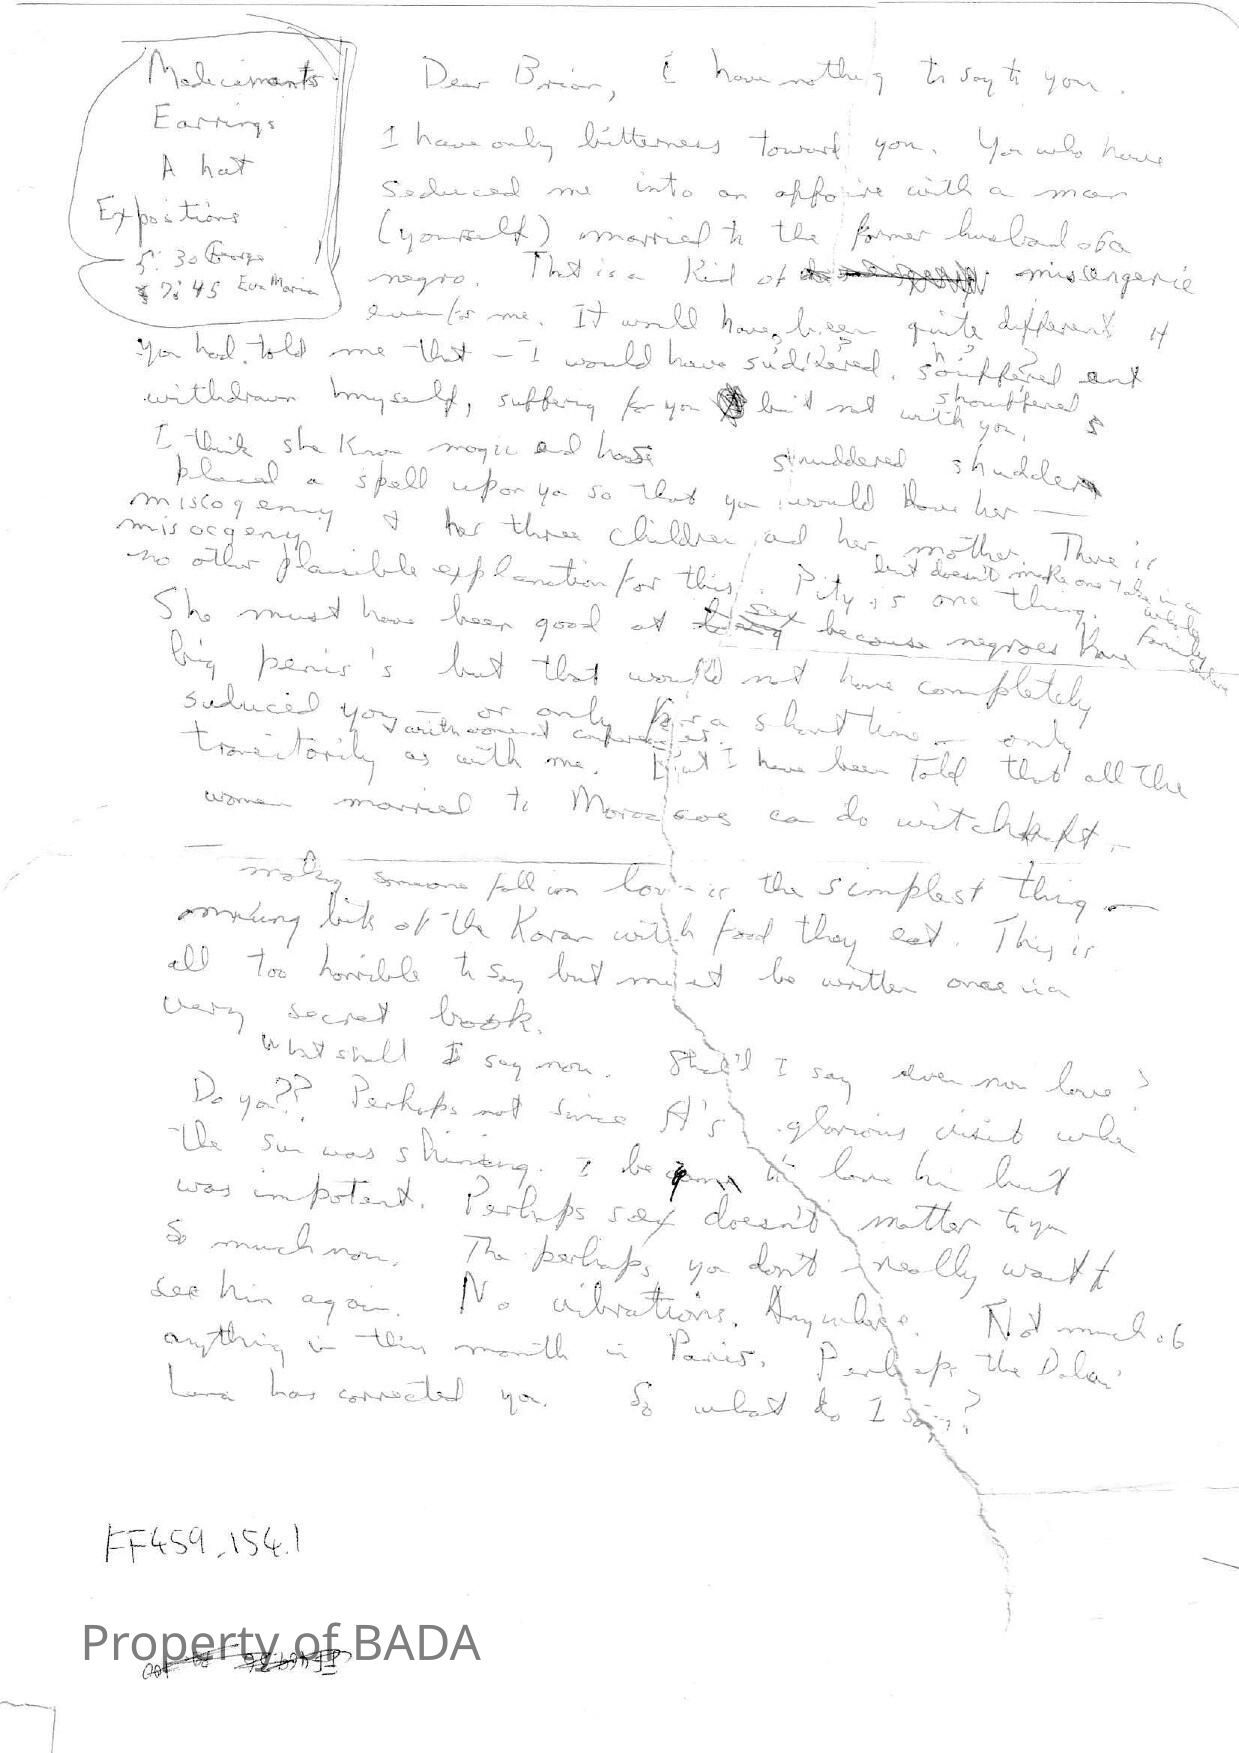 Medicaments
Earrings
A hat
Expositions
5:30 George
7:45 Eva Maria
Dear Brion, I have nothing to say to you.
I have only bitterness toward you. You who have
seduced me into an affaire with a man
(yourself) married to the former husband of a
negro. That is a kind of miscengerie
even for me. It would have been quite different if
you had told me that – I would have suddered. souffered and
shouffered
withdrawn myself, suffering for you but not with you.
I think she know magic and has shuddered shudder
placed a spell upon you so that you would have her —
miscogenny & her three children and her mother. There is
misocgeny
no other plausible explanation for this. Pity is one thing.
but doesn't make one take in a whole family
She must have been good at sex because negroes have
big penis's but that would not have completely
seduced you — or only for a short time — only
transitorily as with me. But I have been told that all the
women married to Moroccos can do witchkraft –
– making someone fall in love is the simplest thing —
mixing bits of the Koran with food they eat. This is
all too horrible to say but must be written once in a
very secret book.
What shall I say now. Shall I say even now love?
Do you?? Perhaps not since A's glorious visit when
the sun was shining. I began to love him but
was impotent. Perhaps sex doesn't matter to you
so much now. The perhaps you don't really want to
see him again. No vibrations. Anywhere. Not much of
anything in this month in Paris. Perhaps the Dalai
Lama has corrected you. So what do I say?
FF459.154.1
Property of BADA